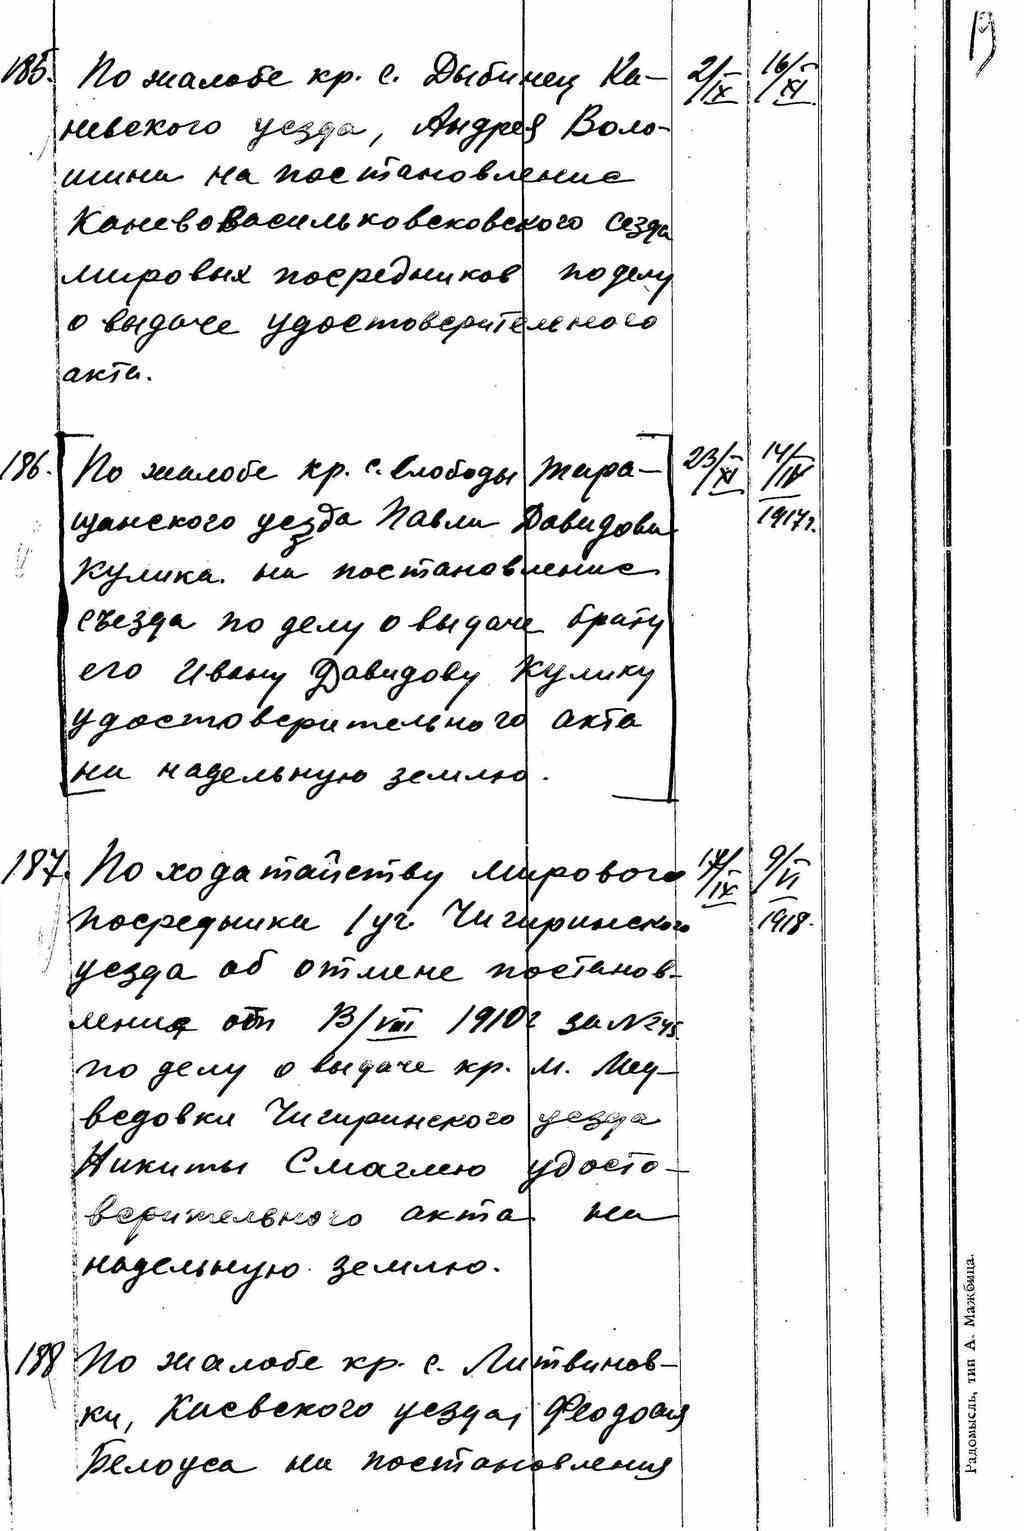 19
185. По жалобе кр. с. Дыбинец Ка- 2/IX 16/XI
невского уезда, Андрея Воло-
шина на постановление
Каневовасильковсковского сезда
мировых посредников по делу
о выдаче удостоверительного
акта.
186. По жалобе кр. с. Слободы Тара- 23/XI 14/IV
щанского уезда Павла Давидова 1917г.
Кулика. на постановление
съезда по делу о выдаче брату
его Ивану Давидову Кулику
удостоверительного акта
на надельную землю.
187. По ходатайству мирового /IX 9/VI
посредника 1 уч. Чигиринского 1918.
уезда об отмене постанов-
ления от 13/VIII 1910г за № 245.
по делу о выдаче кр. м. Мед-
ведовки Чигиринского уезда
Никиты Смаглею удосто-
верительного акта на
надельную землю.
188 По жалобе кр. с. Литвинов-
ки, Киевского уезда, Феодосия
Белоуса на постановления
Радомысль, тип А. Мажбица.